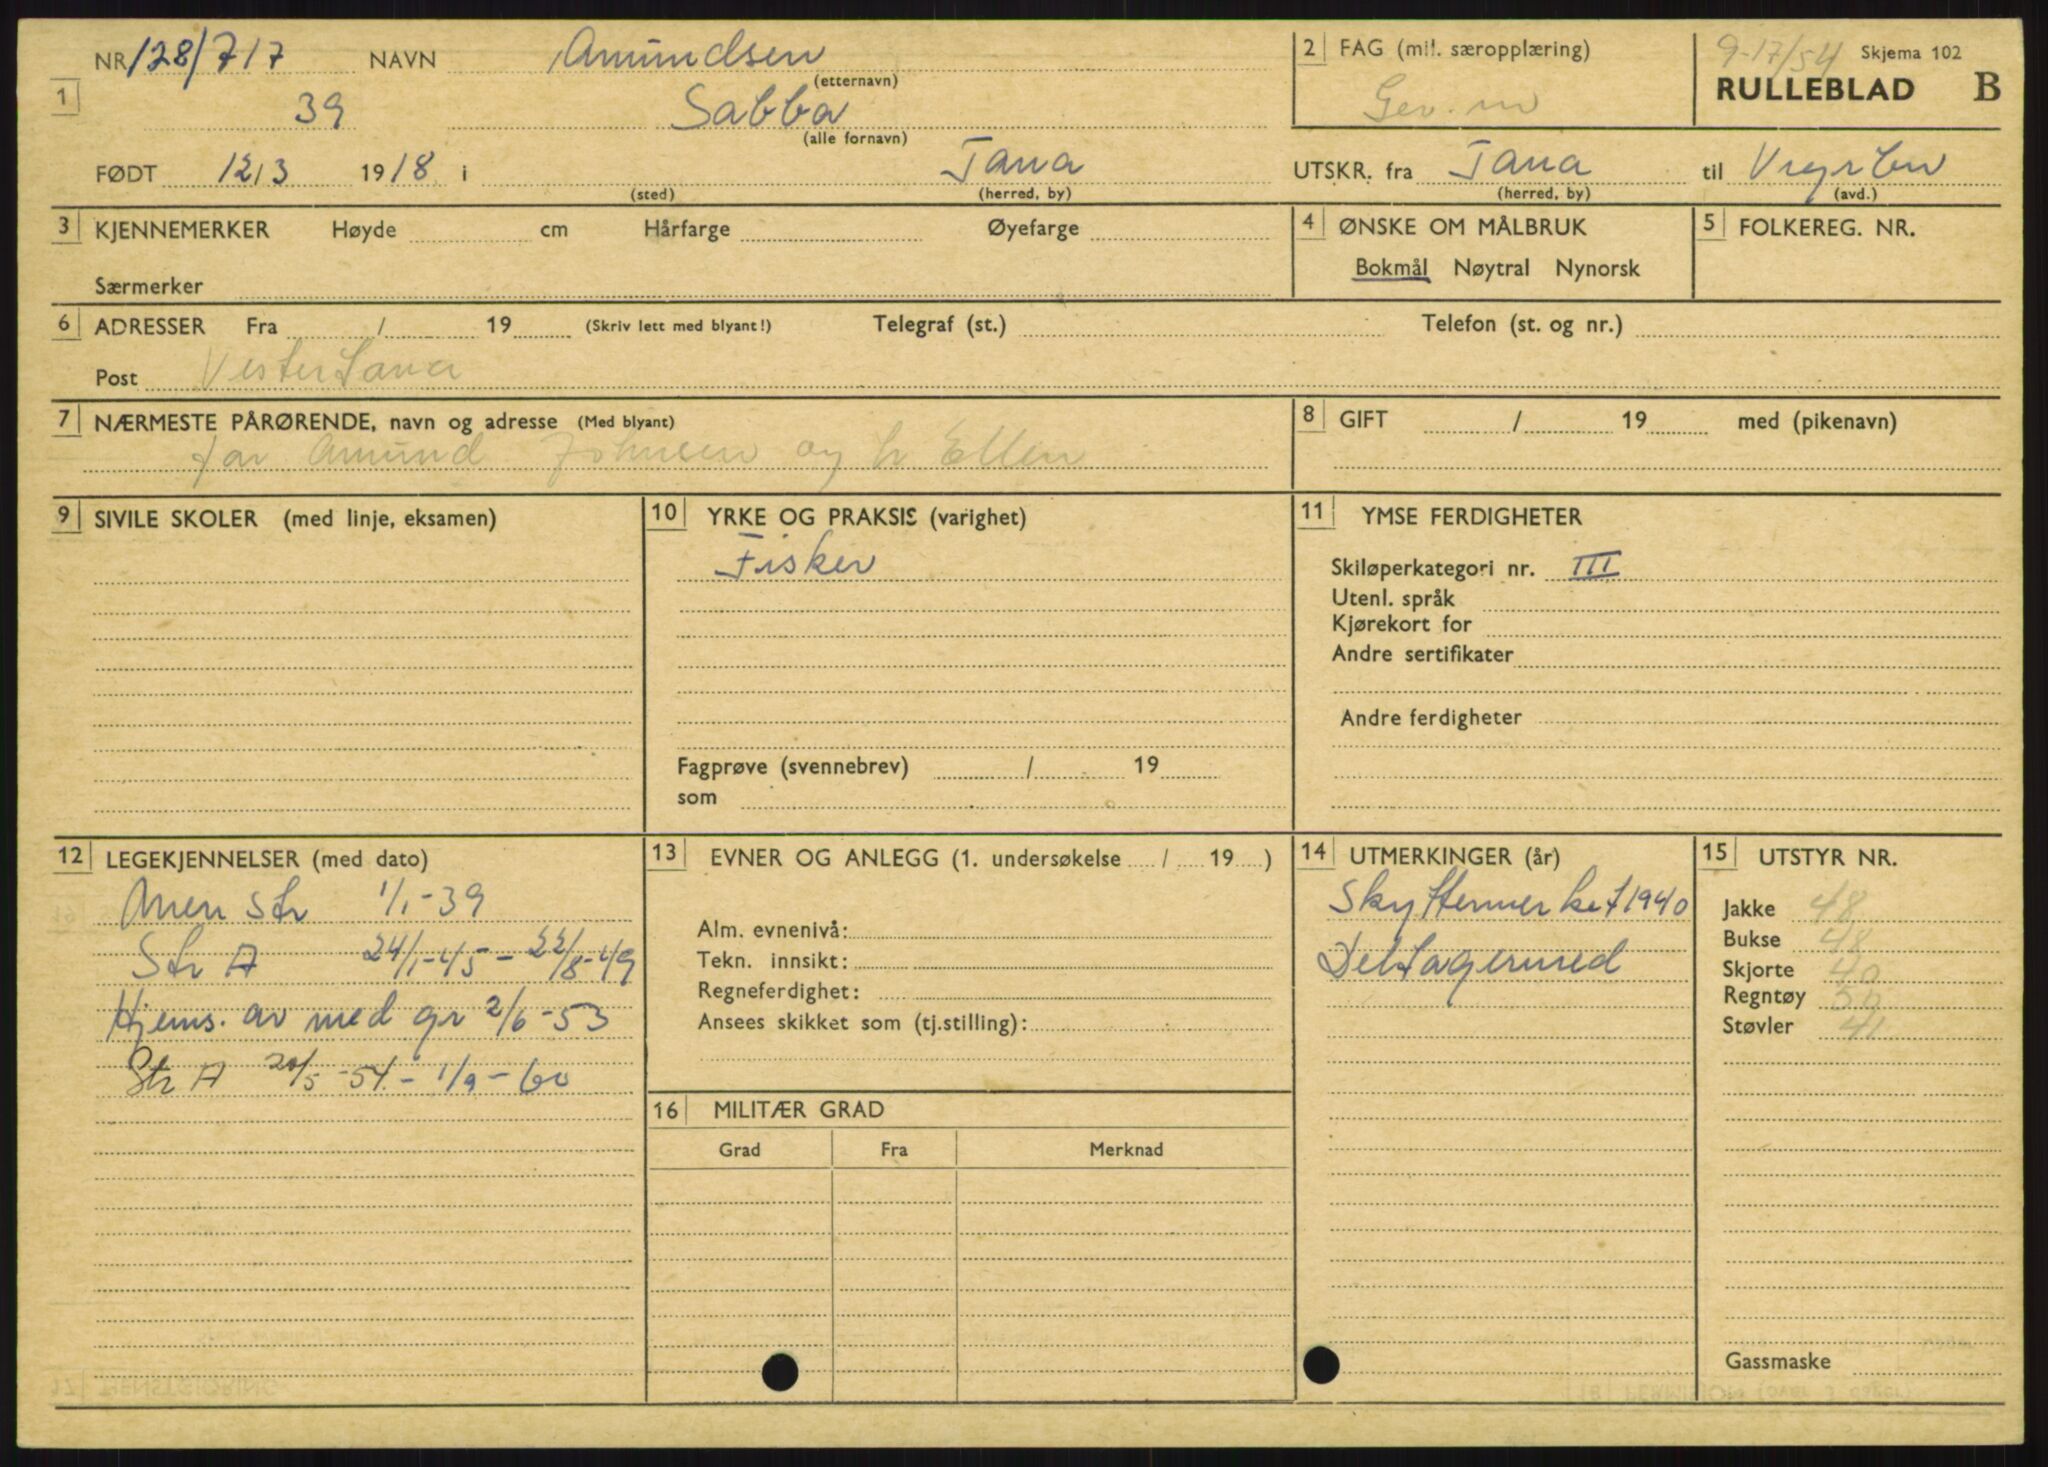 NR 128/717 NAVN Amundsen
(etternavn)
1 39 Sabba
(alle fornavn)
FØDT 12/3 1918 i Tana
(sted) (herred, by)
2 FAG (mil. særopplæring)
Gev. m
9-17/54 Skjema 102
RULLEBLAD B
UTSKR. fra Tana til
(herred, by) (avd.)
3 KJENNEMERKER Høyde cm Hårfarge Øyefarge
Særmerker
4 ØNSKE OM MÅLBRUK
Bokmål Nøytral Nynorsk
5 FOLKEREG. NR.
6 ADRESSER Fra / 19 (Skriv lett med blyant!) Telegraf (st.) Telefon (st. og nr.)
Post Vestertana
7 NÆRMESTE PÅRØRENDE, navn og adresse (Med blyant)
far Amund Johnsen og h Ellen
8 GIFT / 19 med (pikenavn)
9 SIVILE SKOLER (med linje, eksamen)
10 YRKE OG PRAKSIS (varighet)
Fisker
Fagprøve (svennebrev) / 19
som
11 YMSE FERDIGHETER
Skiløperkategori nr. III
Utenl. språk
Kjørekort for
Andre sertifikater
Andre ferdigheter
12 LEGEKJENNELSER (med dato)
Str 1/1-39
Str A 24/1-45 - 22/8-49
Hjems. av med gr 2/6-53
Str A 20/5-54 - 1/9-60
13 EVNER OG ANLEGG (1. undersøkelse / 19 )
Alm. evnenivå:
Tekn. innsikt:
Regneferdighet:
Ansees skikket som (tj.stilling):
14 UTMERKINGER (år)
Skyttermerket 1940
Deltagermed
15 UTSTYR NR.
Jakke 48
Bukse 48
Skjorte 40
Regntøy 50
Støvler 41
Gassmaske
16 MILITÆR GRAD
Grad Fra Merknad